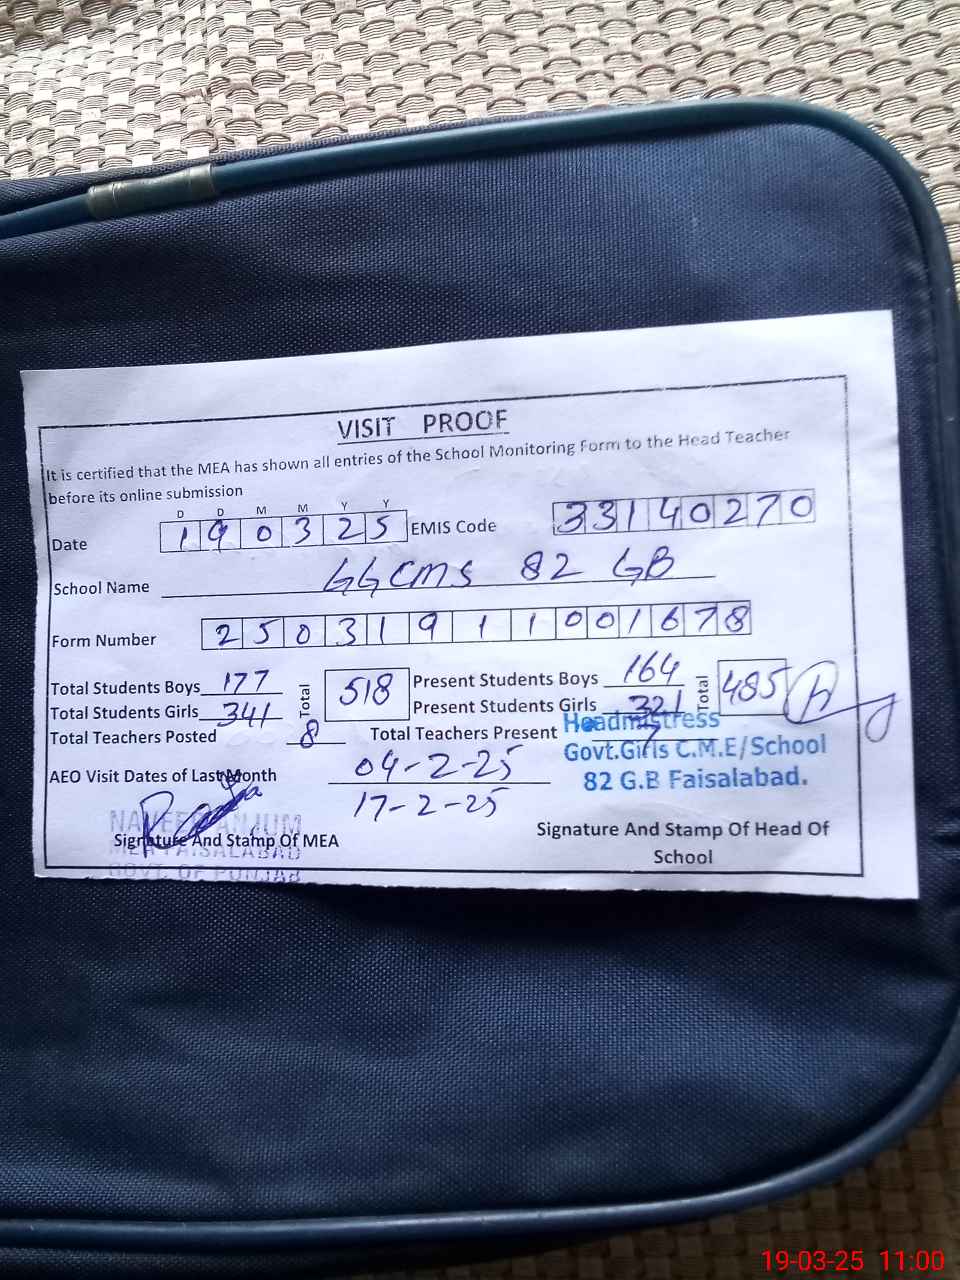 VISIT PROOF
It is certified that the MEA has shown all entries of the School Monitoring Form to the Head Teacher
before its online submission
D D M M Y Y
Date 1 9 0 3 2 5 EMIS Code 3 3 1 4 0 2 7 0
School Name GGCMS 82 GB
Form Number 2 5 0 3 1 9 1 1 0 0 1 6 7 8
Total Students Boys 177 Total 518 Present Students Boys 164 Total 485
Total Students Girls 341 Present Students Girls 321
Total Teachers Posted 8 Total Teachers Present 7
Headmistress
Govt.Girls C.M.E/School
82 G.B Faisalabad.
AEO Visit Dates of Last Month 04-2-25
17-2-25
ANJUM
Signature And Stamp Of MEA
MEA FAISALABAD
GOVT. OF PUNJAB
Signature And Stamp Of Head Of
School
19-03-25 11:00